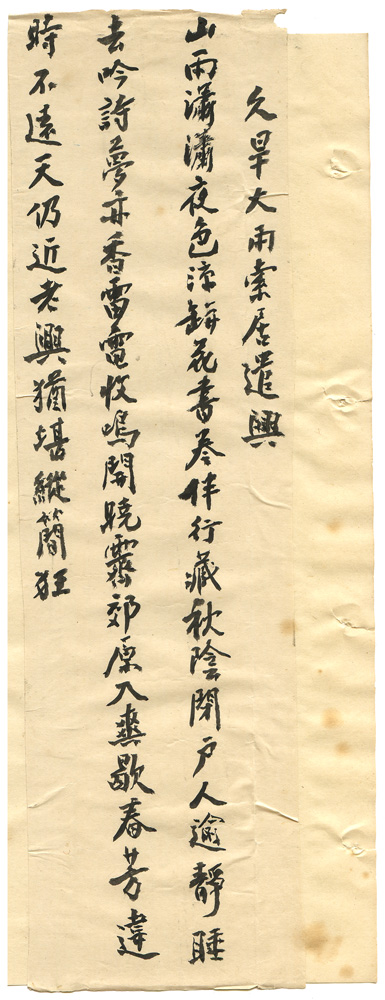 久旱大雨索居遣興
山雨瀟瀟夜色涼缾花書卷伴行藏秋陰閉戶人逾靜睡
去吟詩夢亦香雷電收鳴開曉霽郊原入爽歇春芳違
時不遠天仍近老興猶堪縱簡狂